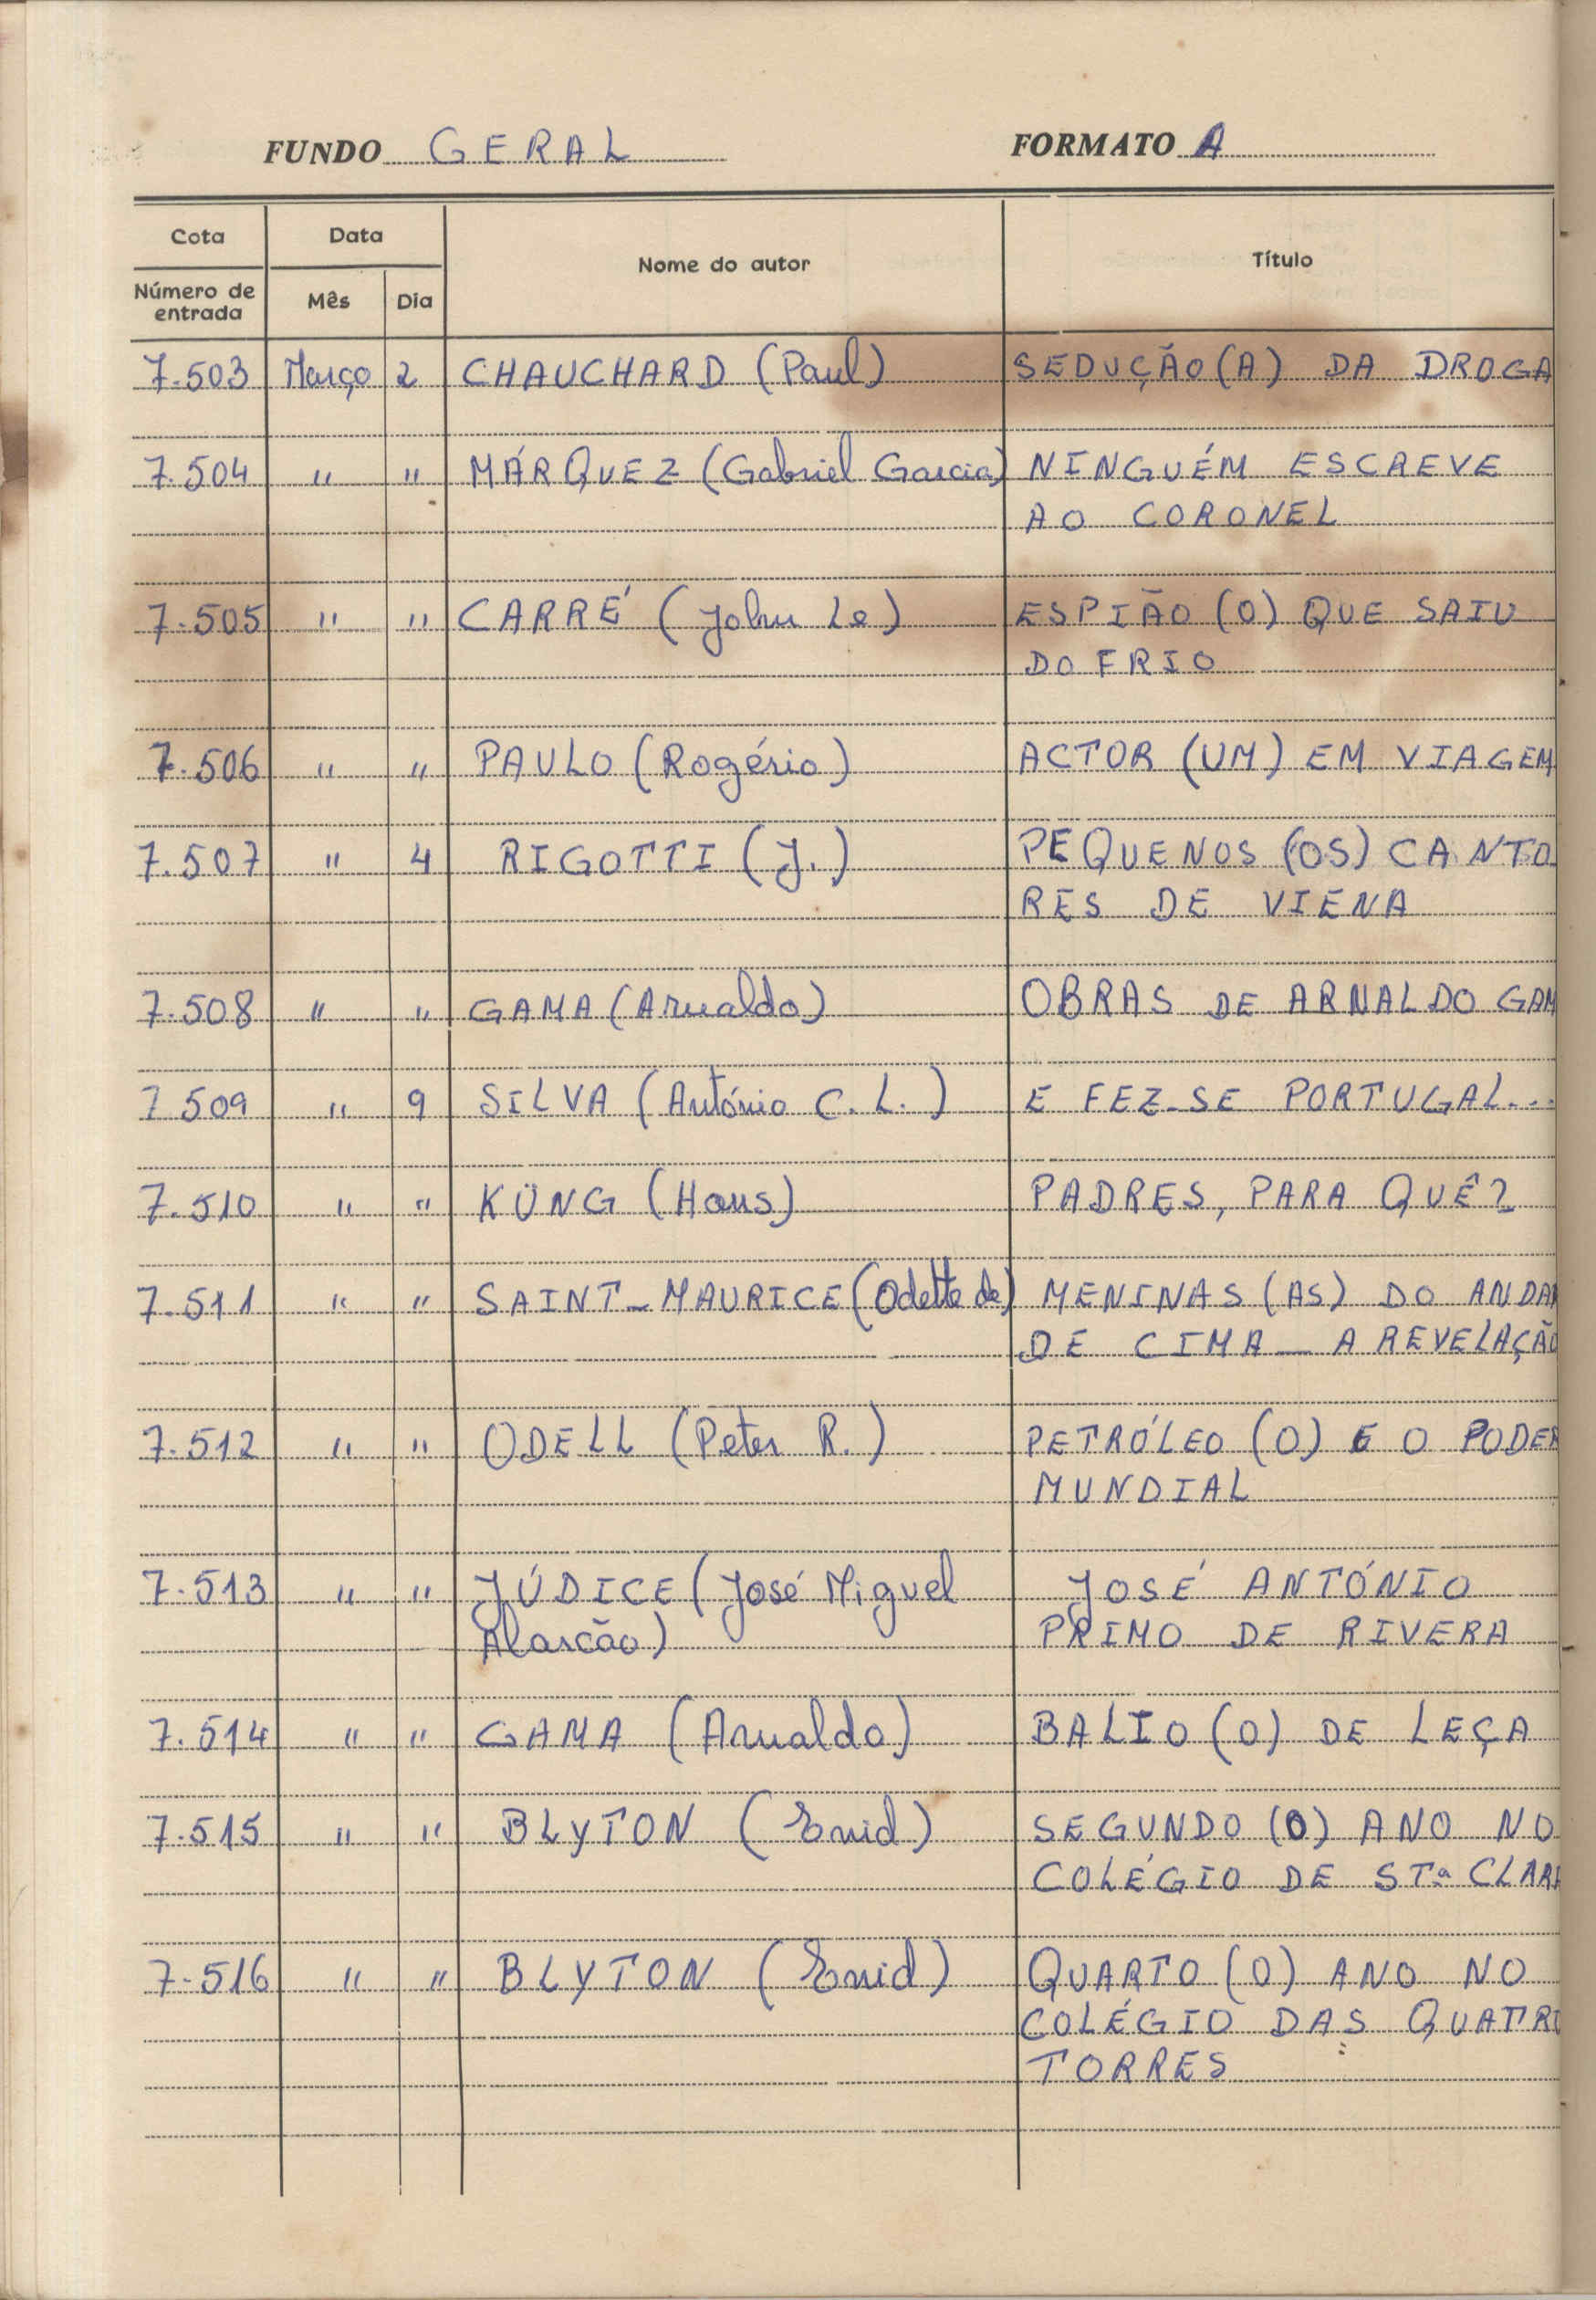 FUNDO GERAL FORMATO A
Cota Data Nome do autor Título
Número de entrada Mês Dia
7.503 Março 2 CHAUCHARD (Paul) SEDUÇÃO (A) DA DROGA
7.504 " " MÁRQUEZ (Gabriel Garcia) NINGUÉM ESCREVE
AO CORONEL
7.505 " " CARRÉ (John Le) ESPIÃO (O) QUE SAIU
DO FRIO
7.506 " " PAULO (Rogério) ACTOR (UM) EM VIAGEM
7.507 " 4 RIGOTTI (J.) PEQUENOS (OS) CANTO
RES DE VIENA
7.508 " " GAMA (Arnaldo) OBRAS DE ARNALDO GAM
7509 " 9 SILVA (António C. L.) E FEZ-SE PORTUGAL...
7.510 " " KÜNG (Hans) PADRES, PARA QUÊ?
7.511 " " SAINT-MAURICE (Odette de) MENINAS (AS) DO ANDAR
DE CIMA - A REVELAÇÃO
7.512 " " ODELL (Peter R.) PETRÓLEO (O) E O PODER
MUNDIAL
7.513 " " JÚDICE (José Miguel JOSÉ ANTÓNIO
Alarcão) PRIMO DE RIVERA
7.514 " " GAMA (Arnaldo) BALIO (O) DE LEÇA
7.515 " " BLYTON (Enid) SEGUNDO (O) ANO NO
COLÉGIO DE STª CLARA
7.516 " " BLYTON (Enid) QUARTO (O) ANO NO
COLÉGIO DAS QUATRO
TORRES